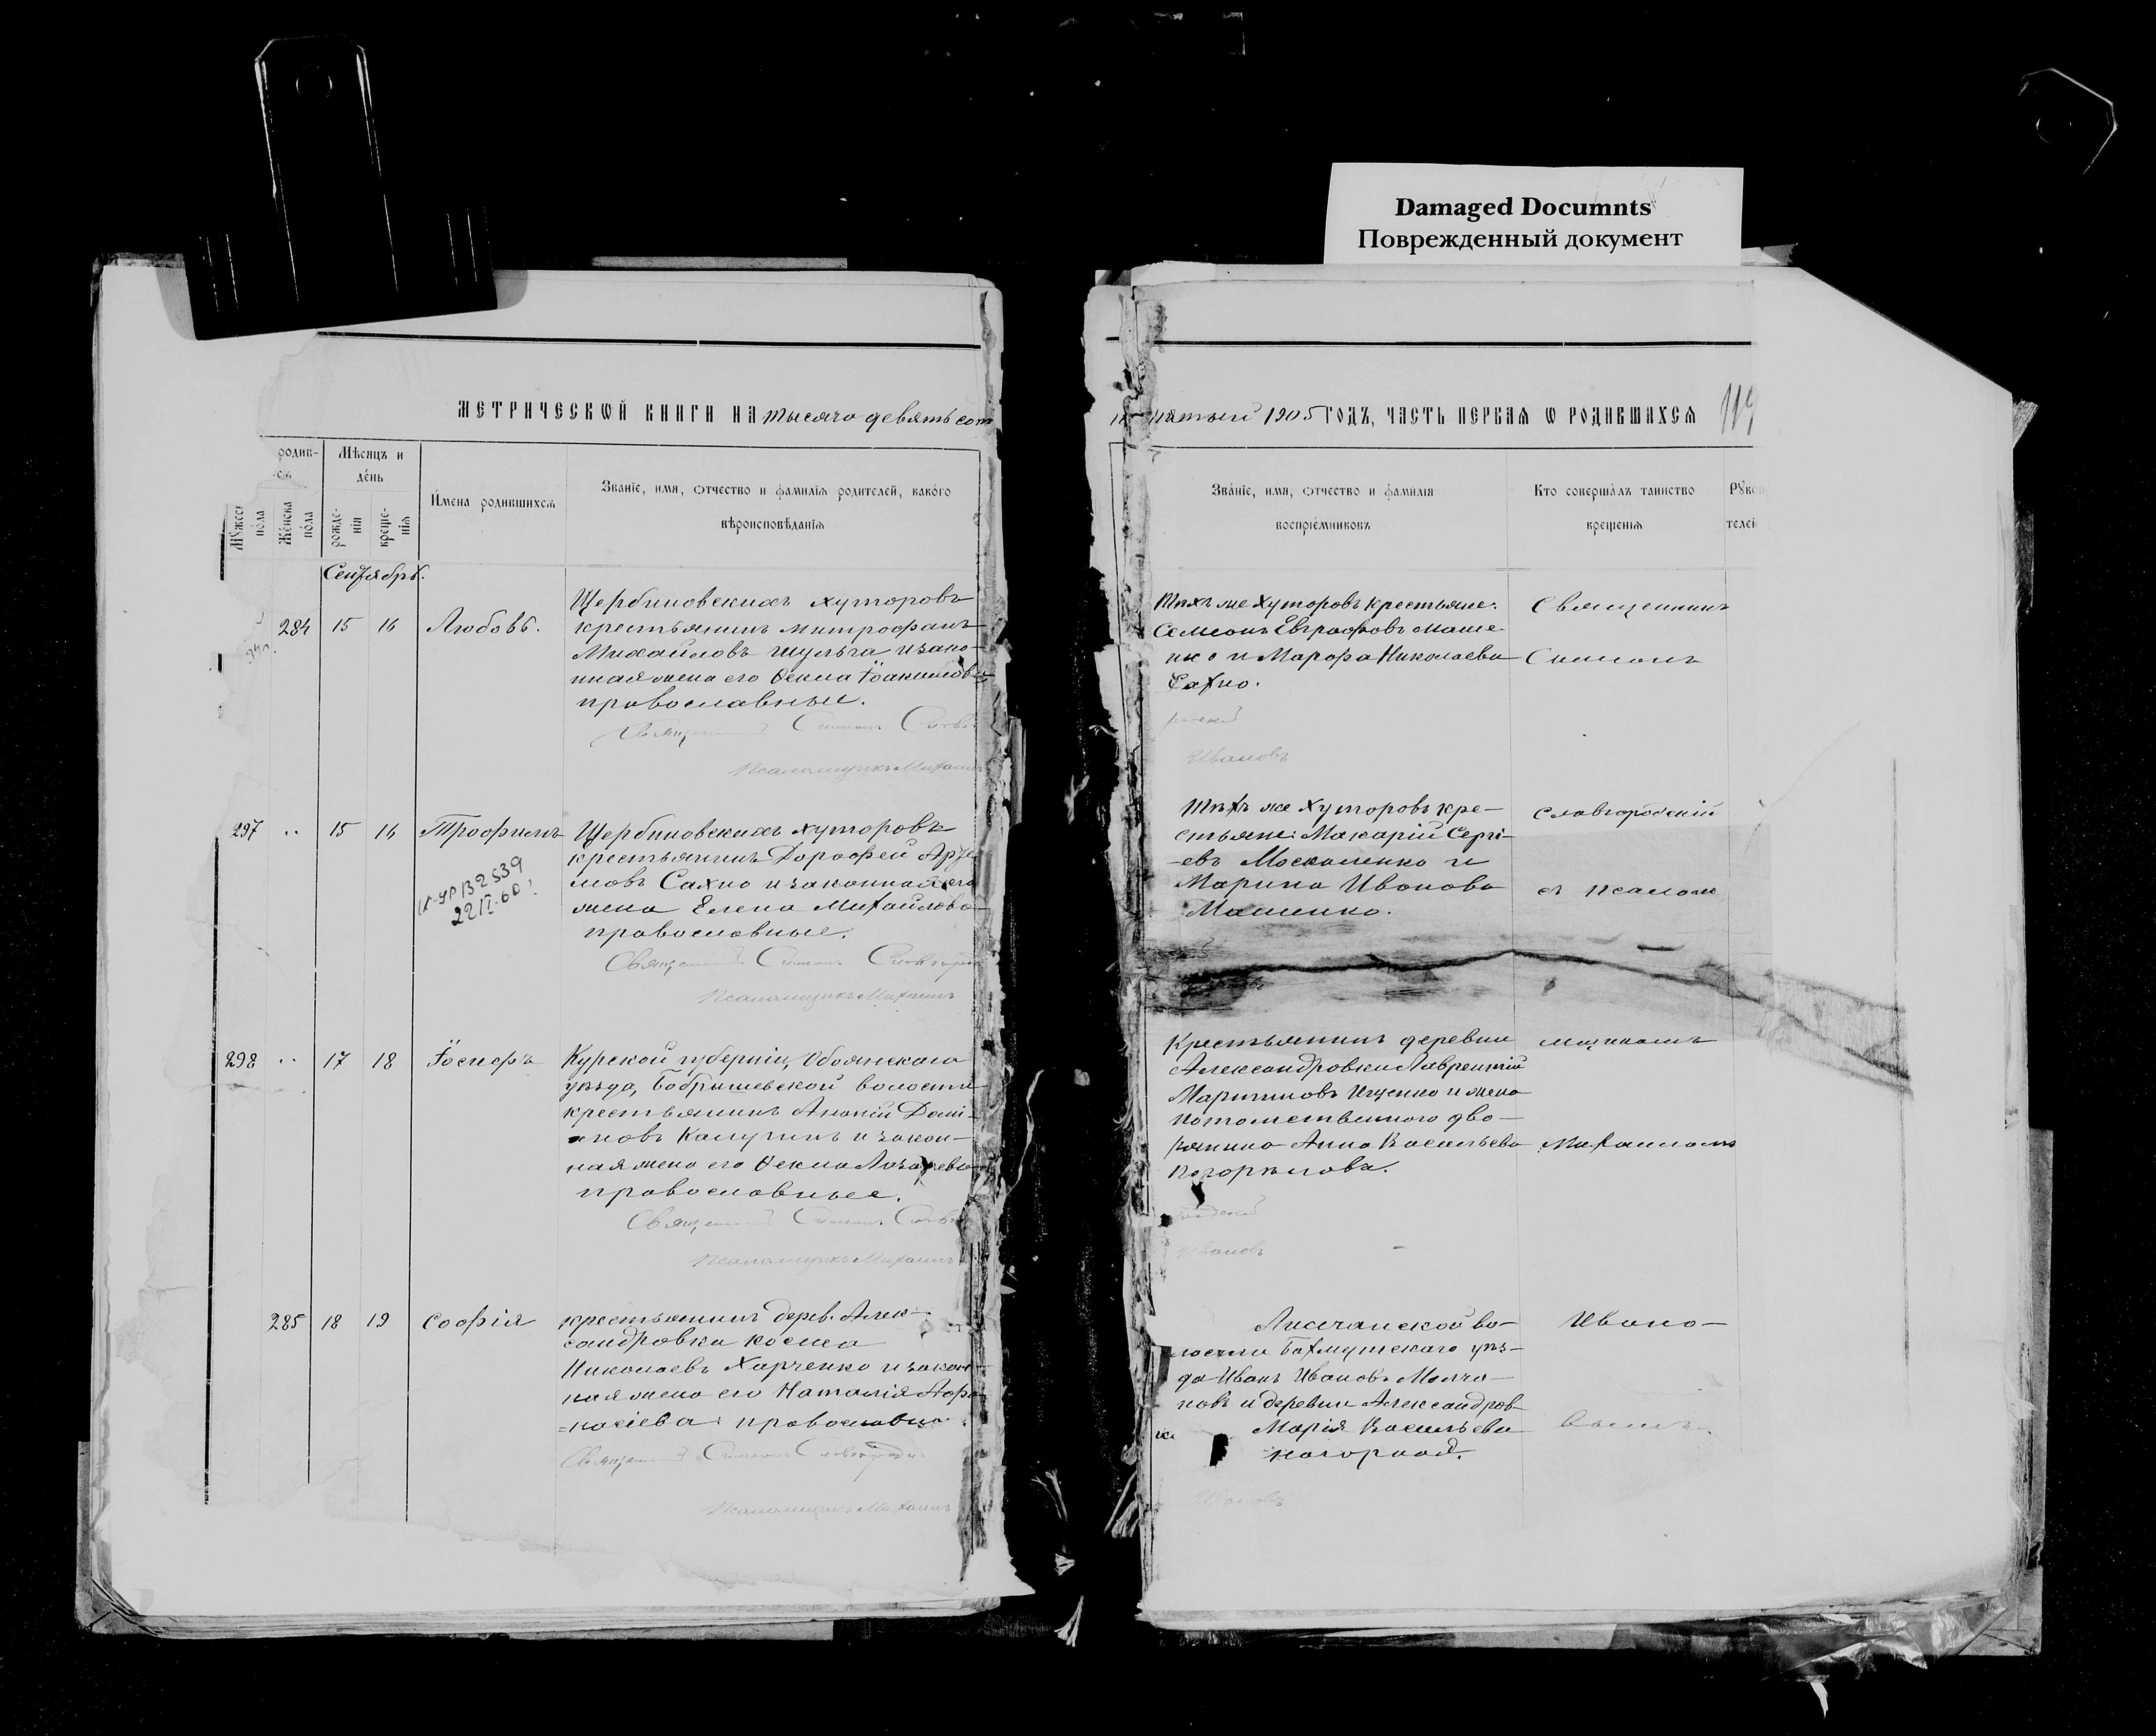 Damaged Documnts
Поврежденный документ
МЕТРИЧЕСКОЙ КНИГИ НА тысяча девятьсот
пятый 1905 ГОДЪ, ЧАСТЬ ПЕРВАЯ Ѡ РОДИВШИХСЯ
родив-
Мѣсяцъ и
день
Мужеск
пола
Женска
пола
рожде-
нія
креще-
нія
Имена родившихся
Званіе, имя, отчество и фамилія родителей, какого
вѣроисповѣданія
Званіе, имя, отчество и фамилія
воспріемниковъ
Кто совершалъ таинство
крещенія
Руко
телей
Сентябрь.
284 15 16 Любовь.
Щербиновскихъ хуторовъ
крестьянинъ Митрофанъ
Михайловъ Шульга и зако-
нная жена его Ѳекла Іоакимова
православные.
Священникъ Симеонъ
Псаломщикъ Михаилъ
Тѣхъ же хуторовъ крестьяне:
Семеонъ Евграфовъ Маше-
нко и Марфа Николаева
Сахно.
Ивановъ
Священникъ
Симеонъ
297 " 15 16 Трофимъ
22 II-60
Щербиновскихъ хуторовъ
крестьянинъ Дорофей Арте
мовъ Сахно и законная его
жена Елена Михайлова
православные.
Священникъ Симеонъ
Псаломщикъ Михаилъ
Тѣхъ же хуторовъ кре-
стьяне: Макарій Сергі-
-евъ Москаленко и
Марина Иванова
Машенко.
Славгородскій
съ псалом
298 " 17 18 Іосифъ
Курской губерніи, Обоянскаго
уѣзда, Бобрышевской волости
крестьянинъ Ананій Домі-
ановъ Калугинъ и закон-
ная жена его Ѳекла Лазарева
православные.
Священникъ Симеонъ
Псаломщикъ Михаилъ
Крестьянинъ деревни
Александровки Лаврентій
Мартиновъ Ищенко и жена
потомственнаго дво-
рянина Анна Васильева
Погорѣлова.
Ивановъ
щикомъ
Михаиломъ
285 18 19 Софія
крестьянинъ дерев. Алек-
сандровки Косма
Николаевъ Харченко и закон-
ная жена его Наталія Афа
-насіева; православные
Священникъ Симеонъ
Псаломщикъ Михаилъ
Лисичанской во-
лости Бахмутскаго уѣз-
да Иванъ Ивановъ Молча-
новъ и деревни Александров-
Марія Васильева
Нагорная.
Ивановъ
Ивано-
вымъ.